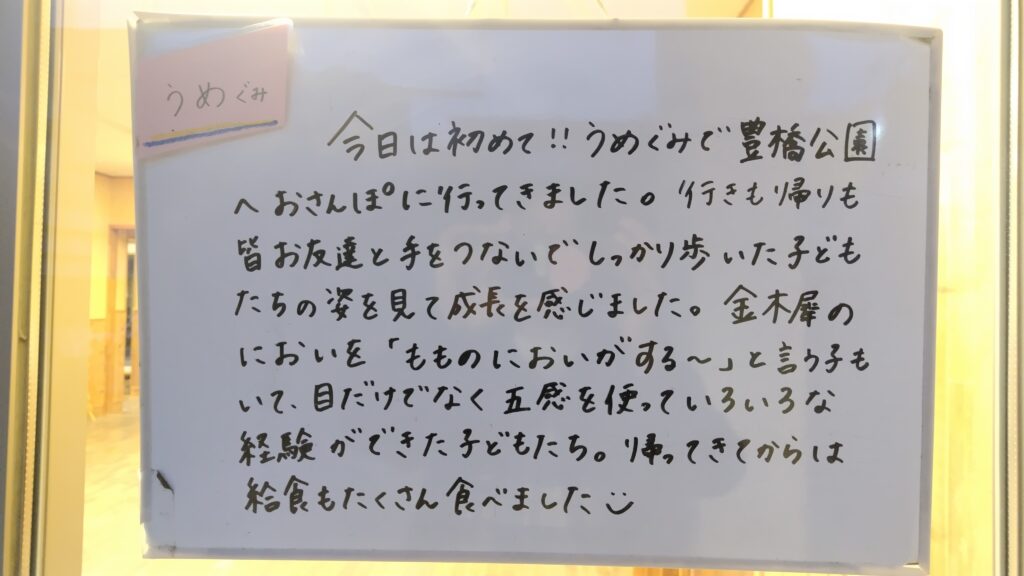 うめぐみ
今日は初めて!!うめぐみで豊橋公園
へおさんぽに行ってきました。行きも帰りも
皆お友達と手をつないでしっかり歩いた子ども
たちの姿を見て成長を感じました。金木犀の
においを「もものにおいがする〜」と言う子も
いて、目だけでなく五感を使っていろいろな
経験ができた子どもたち。帰ってきてからは
給食もたくさん食べました